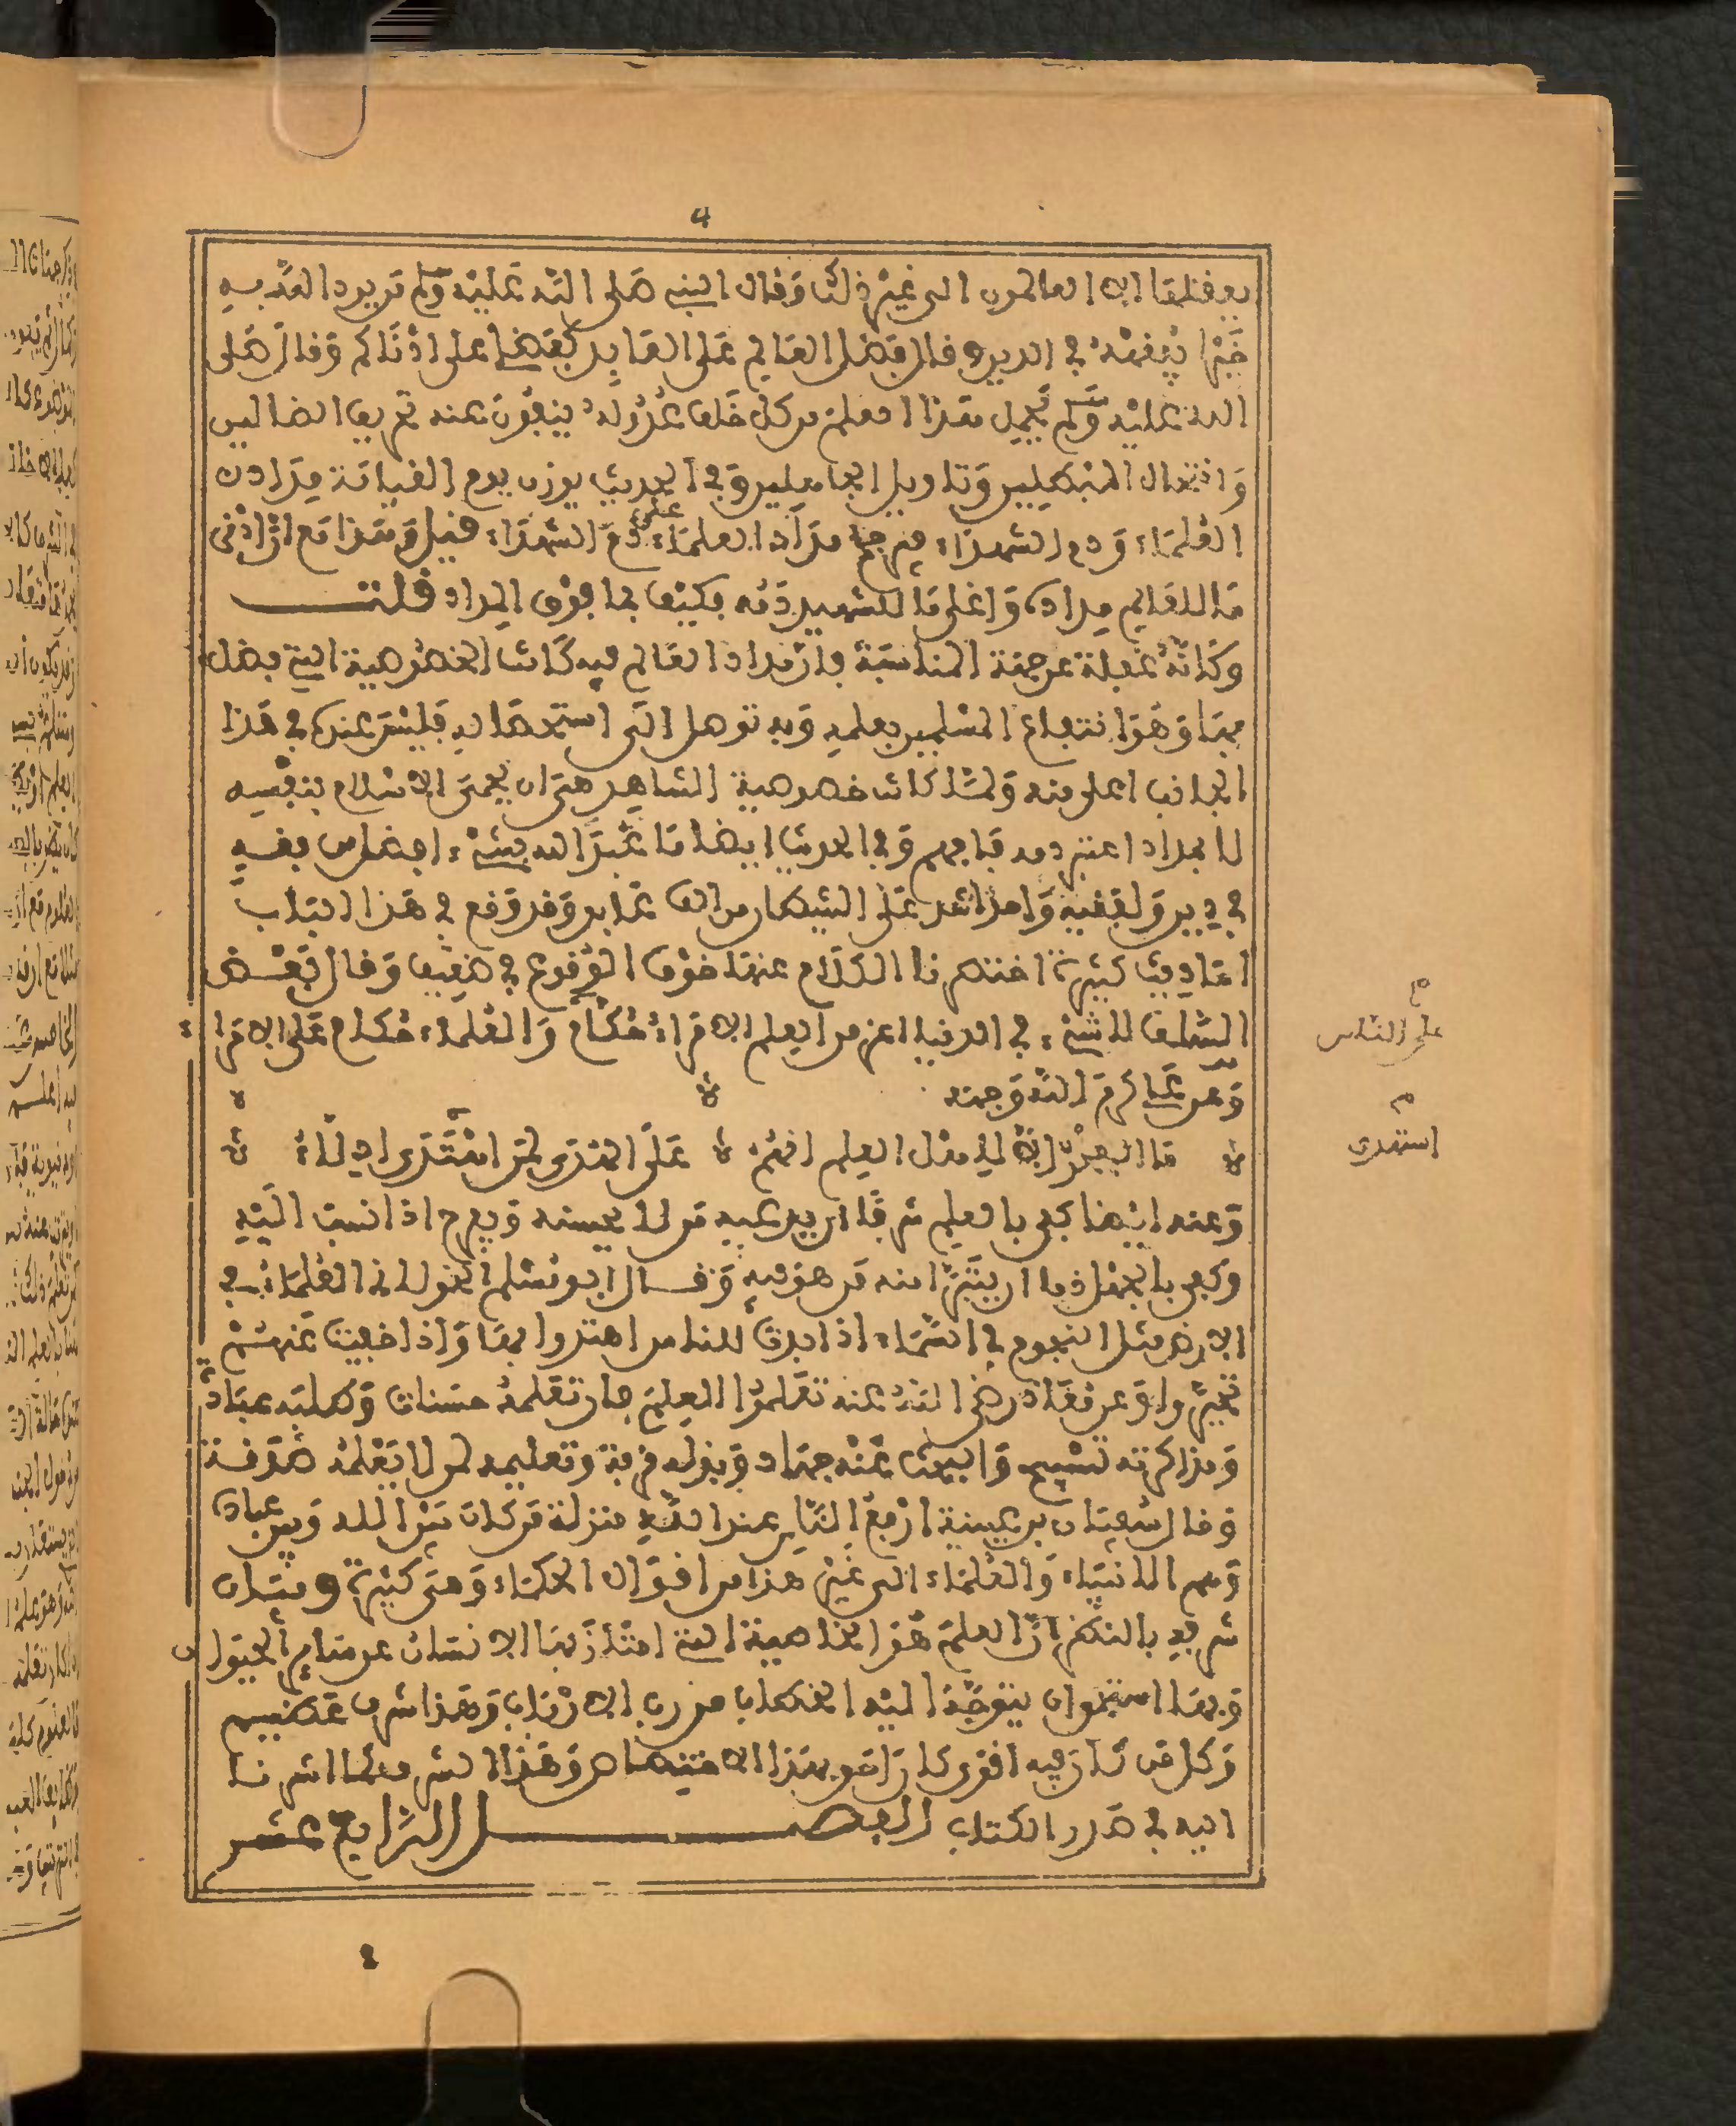 4
يعقلها إلا العالمون الى غير ذلك وقال النبي صلى الله عليه وسلم من يرد الله به
خيرا يفقهه في الدين وقال فضل العالم على العابد كفضلي على ادناكم وقال صلى
الله عليه وسلم يحمل هذا العلم من كل خلف عدوله ينفون عنه تحريف الضالين
وانتحال المبطلين وتاويل الجاهلين وفي الحديث يوزن يوم القيامة مداد
العلماء ودم الشهداء فيرجح مداد العلماء على دم الشهداء قيل وهذا مع ان ادنى
ما للعالم مداده واعلى ما للشهيد دمه فكيف بما فوق المداد قلت
وكانه غفلة عن جهة المناسبة فان مداد العالم فيه كانت الخصوصية التي فضل
بها وهو انتفاع المسلمين بعلمه وبه توصل الى استحصاله فليس عنده في هذا
الجانب اعلى منه ولما كانت خصوصية الشاهد هي ان يحمى الاسلام بنفسه
لا بمداد اعتبر دمه فافهم وفي الحديث ايضا ما عبد الله بشيء افضل من فقه
في دين ولفقيه واحد اشد على الشيطان من الف عابد وقد وقع في هذا الباب
احاديث كثيرة اختصرنا الكلام عنها خوف الوقوع في ضعيف وقال بعض
السلف لا شيء في الدنيا اعز من العلم الامراء حكام والعلماء حكام على الامرا
وعن علي كرم الله وجهه
ما الفخر إلا لاهل العلم انهم على الهدى لمن استهدى ادلاء
وعنه ايضا كفى بالعلم شرفا ان يدعيه من لا يحسنه ويفرح اذا نسب اليه
وكفى بالجهل ذما ان يتبرأ منه من هو فيه وقال ابو مسلم الخولاني العلماء في
الارض مثل النجوم في السماء اذا بدت للناس اهتدوا بها واذا خفيت عنهم
تحيروا وعن معاذ رضي الله عنه تعلموا العلم فان تعلمه حسنات وطلبه عبادة
ومذاكرته تسبيح والبحث عنه جهاد وبذله قربة وتعليمه لمن لا يعلمه صدقة
وقال سفيان بن عيينة ارفع الناس عند الله منزلة من كان بين الله وبين عباده
وهم الانبياء والعلماء الى غير هذا من اقوال الحكماء وهي كثيرة وبيان
شرفه بالنظر ان العلم هو الخاصية التي امتاز بها الانسان عن سائر الحيوان
وبها استحق ان يتوجه اليه الخطاب من رب الارباب وهذا شرف عظيم
وكل من كان فيه اقوى كان احق بهذا الاختصاص وهذا الشرف كما اشرنا
اليه في صدر الكتاب الفصل الرابع عشر
م
على الناس
م
استهدى